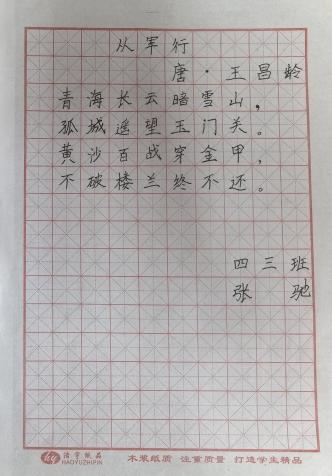 从军行
唐·王昌龄
青海长云暗雪山，
孤城遥望玉门关。
黄沙百战穿金甲，
不破楼兰终不还。
四三班
张 驰
hy 浩宇纸品 HAOYUZHIPIN 木浆纸质 注重质量 打造学生精品